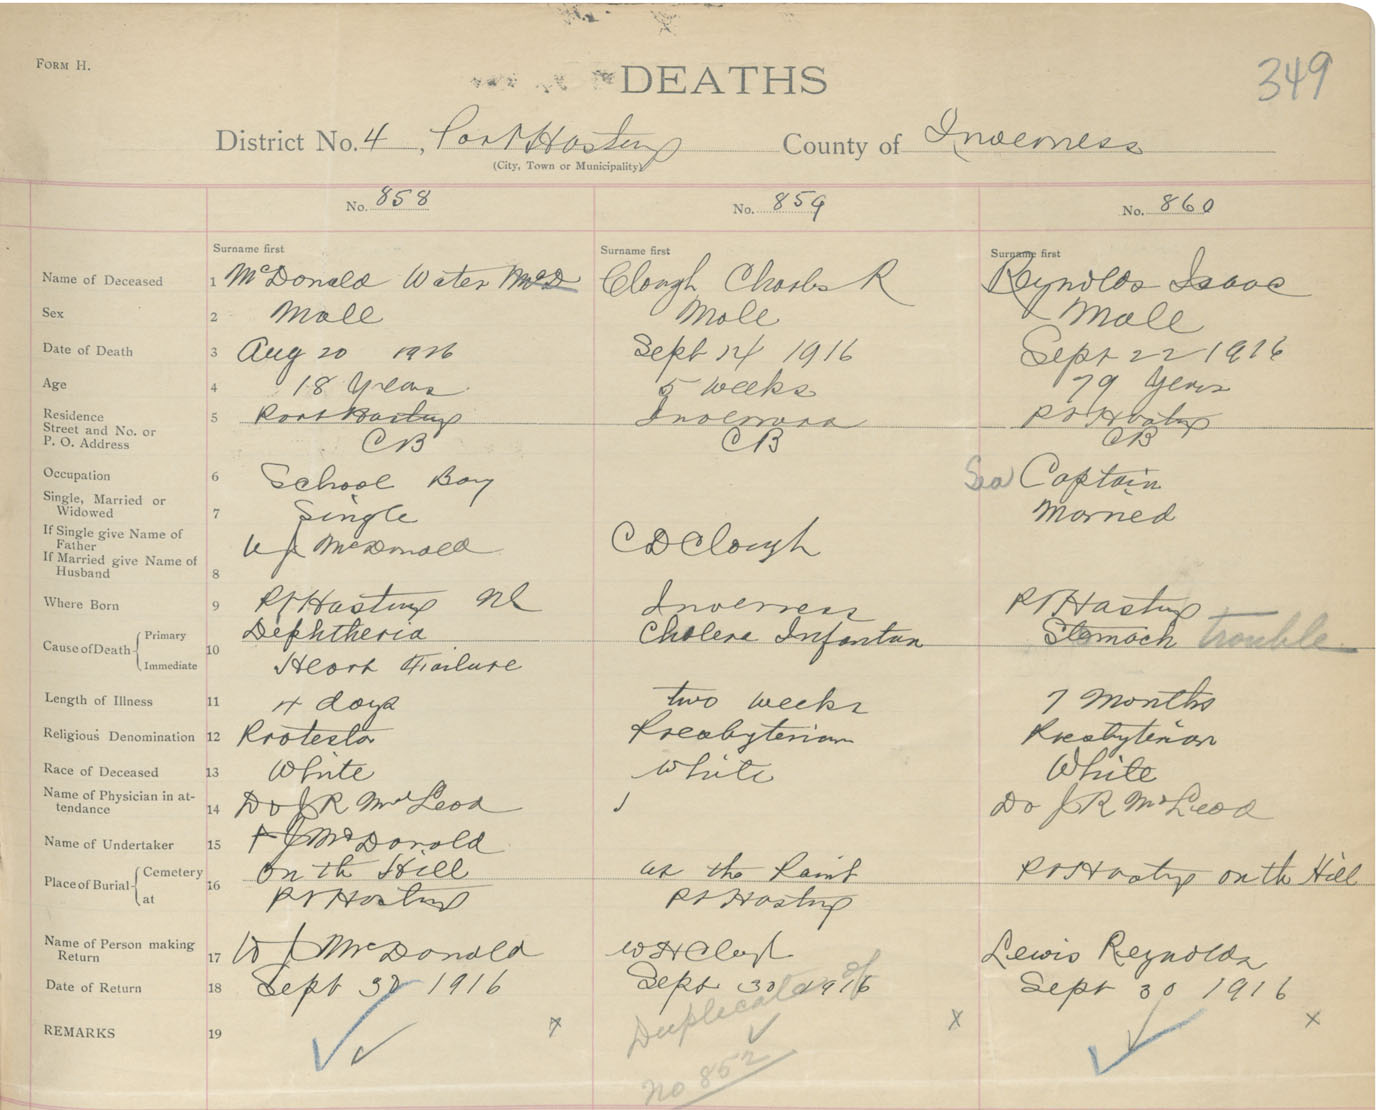 FORM H.
DEATHS
349
District No. 4, Port Hastings County of Inverness
(City, Town or Municipality)
No. 858 No. 859 No. 860
Surname first Surname first Surname first
Name of Deceased 1 McDonald Water McD Clough Charles R Reynolds Isaac
Sex 2 Male Male Male
Date of Death 3 Aug 20 1916 Sept 14 1916 Sept 22 1916
Age 4 18 Years 5 weeks 79 Years
Residence
Street and No. or
P. O. Address 5 Port Hastings Inverness Pt Hastings
CB CB CB
Occupation 6 School Boy Sea Captain
Single, Married or
Widowed 7 Single Married
If Single give Name of
Father
If Married give Name of
Husband 8 W J McDonald C D Clough
Where Born 9 Pt Hastings Inverness Pt Hastings
Cause of Death Primary 10 Diphtheria Cholera Infantum Stomach trouble
Immediate Heart Failure
Length of Illness 11 4 days two weeks 7 Months
Religious Denomination 12 Protesta Presbyterian Presbyterian
Race of Deceased 13 White White White
Name of Physician in at-
tendance 14 Dr J R McLeod Dr J R McLeod
Name of Undertaker 15 J McDonald
Place of Burial Cemetery 16 on th Hill at the Point Pt Hastings on th Hill
at Pt Hastings Pt Hastings
Name of Person making
Return 17 W J McDonald W H Clough Lewis Reynolds
Date of Return 18 Sept 30 1916 Sept 30 1916 Sept 30 1916
REMARKS 19 x Duplicate of x x
No 852